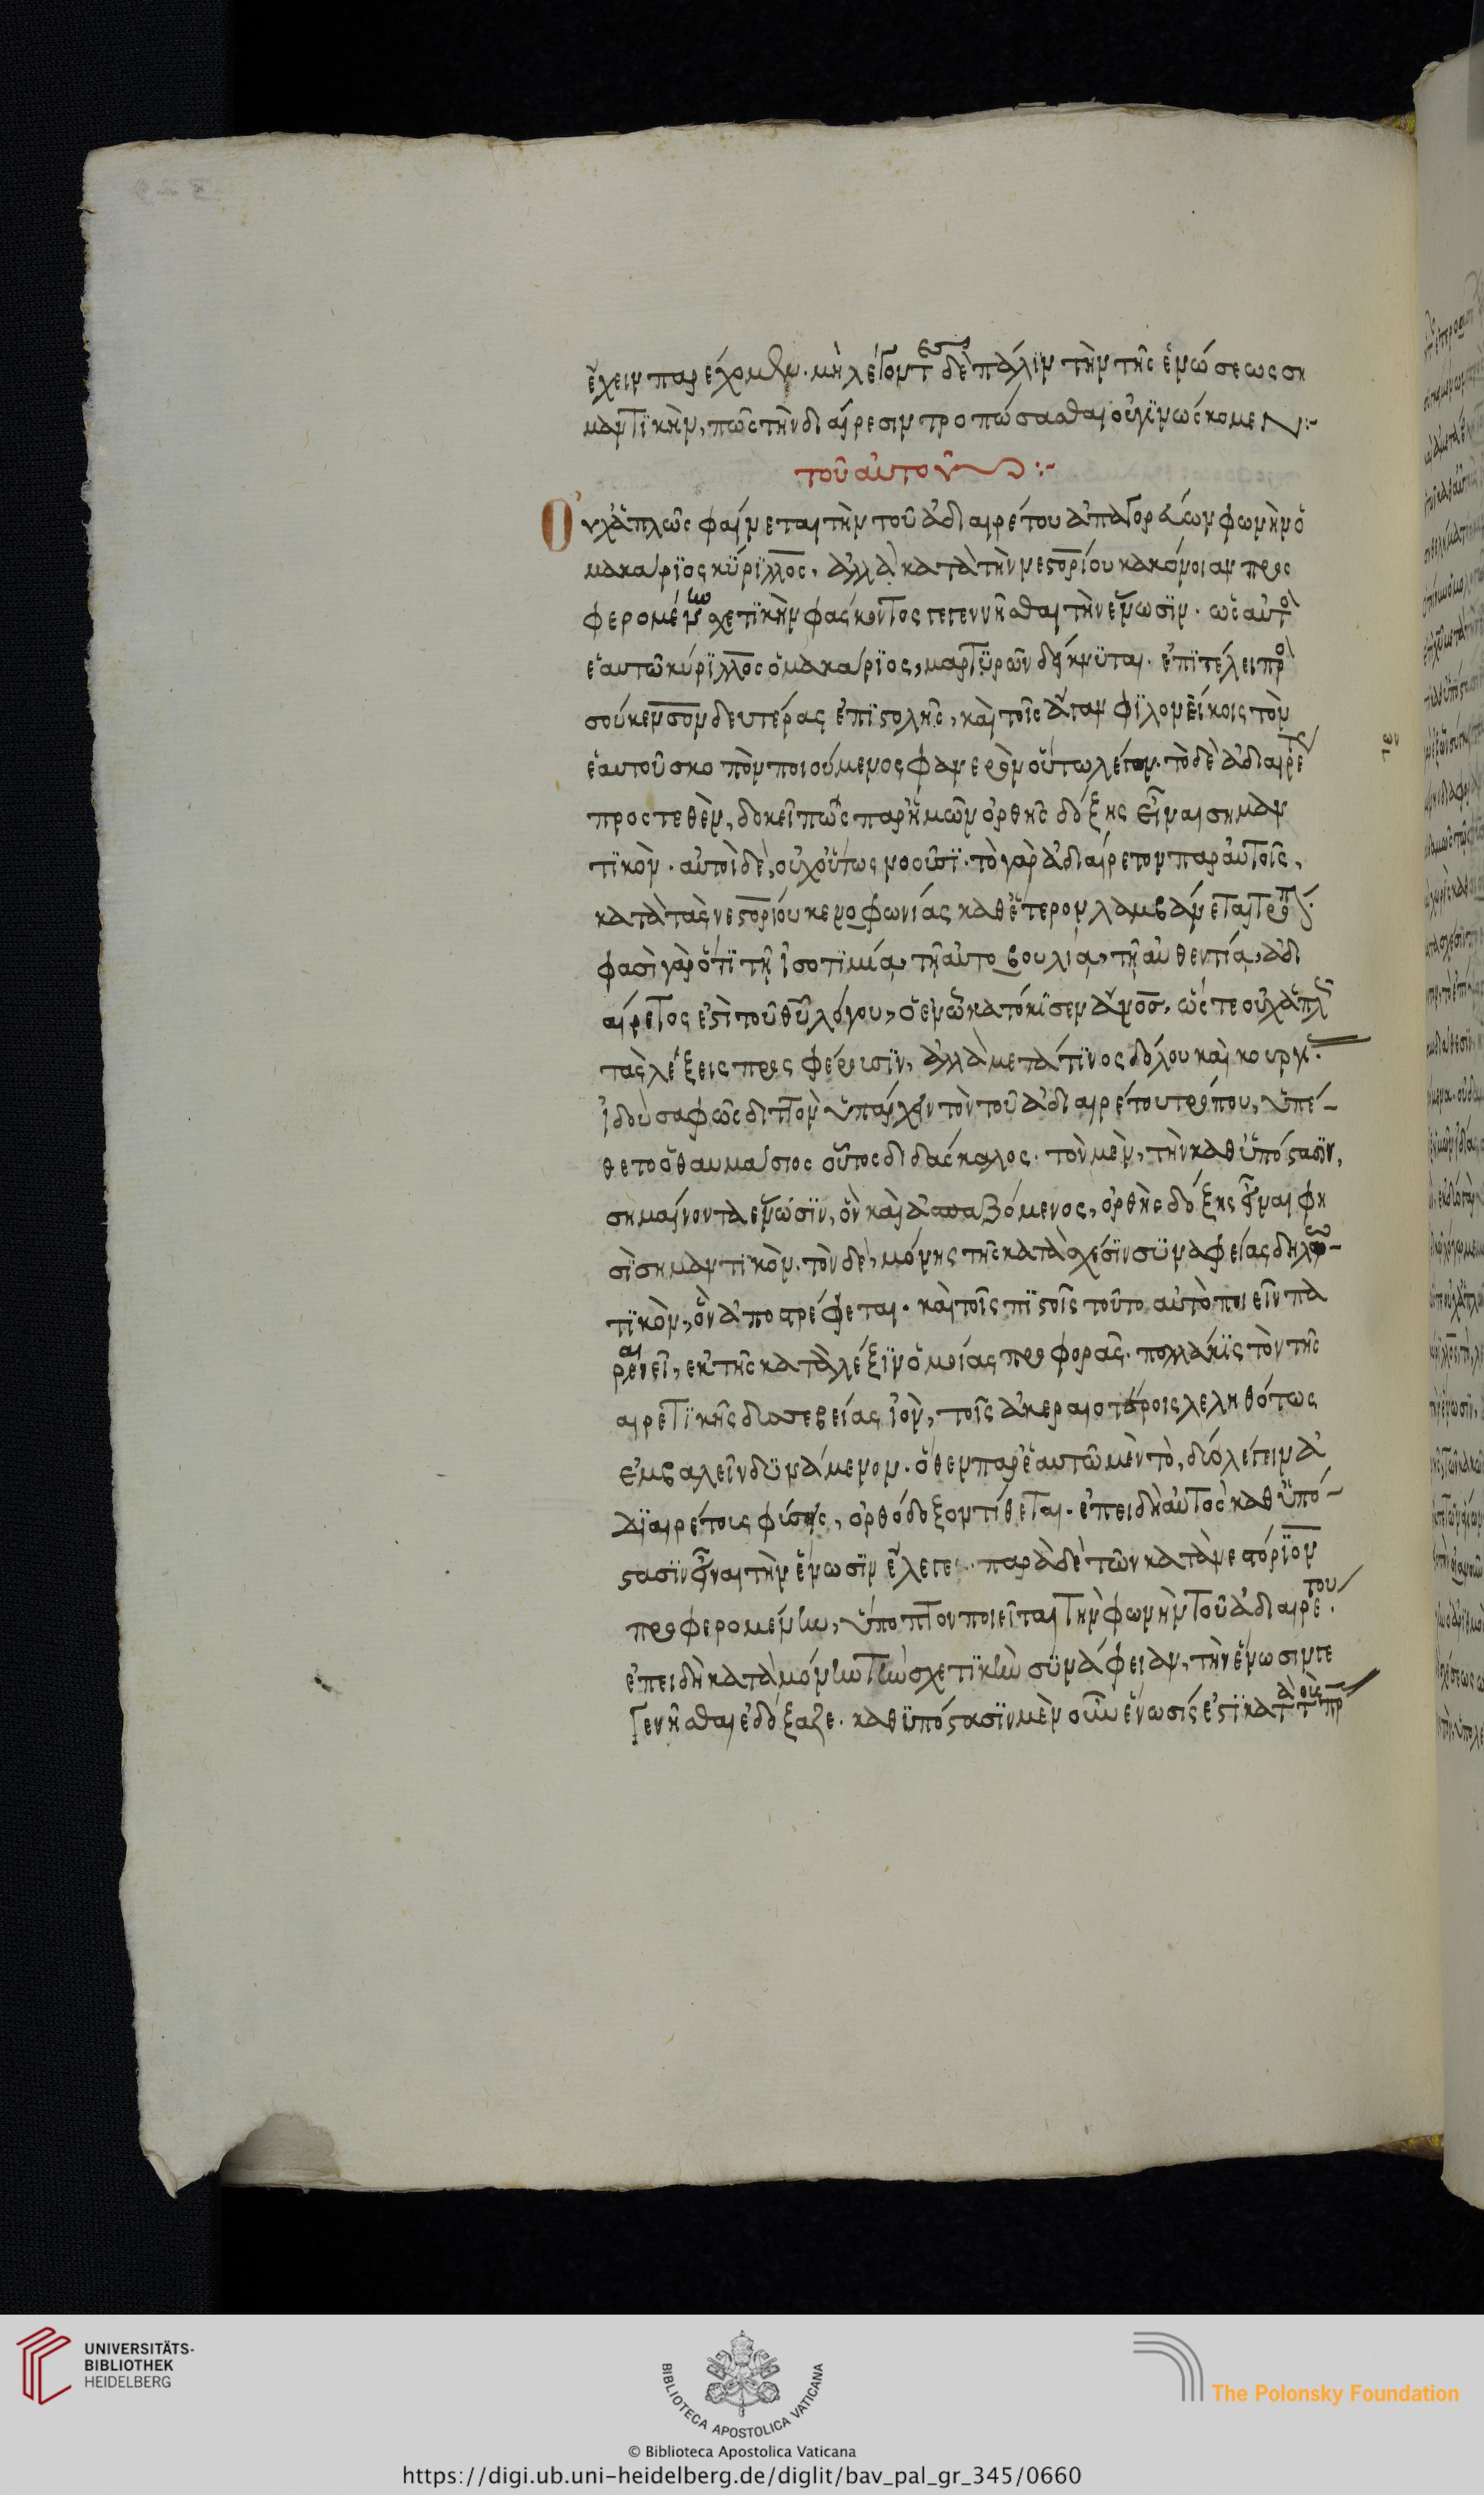 ἔχειν παρέχομεν. μὴ λέγοντες δὲ πάλϊν τὴν τῆς ἑνώσεως ση
μαντϊκὴν, πῶς τὴν διαίρεσιν τροπώσασθαι οὐ γϊνώσκομεν:-
τοῦ αὐτοῦ :-
Οὐχ ἁπλῶς φαίνεται τὴν τοῦ ἀδιαιρέτου ἀπαγορεύων φωνὴν ὁ
μακάρϊος κύρϊλλος, ἀλλὰ κατὰ τὴν νεστορίου κακόνοιαν προς
φερομένην σχετϊκὴν φάσκοντος γεγεννῆσθαι τὴν ἕνωσϊν. ὡς αὐτὸς
ἑαυτῶ κύρϊλλος ὁ μακάρϊος, μαρτϋρῶν δείκνϋται. ἐπϊ τέλει πρὸς
σούκενσον δευτέρας ἐπϊστολῆς, καὶ τοῖς ἄγαν φϊλονείκοις τὸν
ἑαυτοῦ σκοπὸν ποιούμενος φανερὸν οὕτω λέγων. τὸ δὲ ἀδιαιρέτως
προστεθὲν, δοκεῖ πῶς παρ' ἡμῶν ὀρθῆς δόξης εἶναι σημαν
τϊκὸν. αὐτοὶ δὲ, οὐχ οὕτως νοοῦσϊ. τὸ γὰρ ἀδιαίρετον παρ' αὐτοῖς,
κατὰ τὰς νεστορίου κενοφωνίας καθ' ἕτερον λαμβάνεται τρόπον.
φασὶ γὰρ ὅτϊ τῆ ἰσοτϊμία, τῆ αὐτοβουλία, τῆ αὐθεντία, ἀδι
αίρετος ἐστὶ τοῦ θυ λόγου, ὁ ἐν ὧ κατώκϊσεν ἄνος, ὥστε οὐχ ἁπλῶς
τὰς λέξεις προς φέρουσϊν, ἀλλὰ μετά τϊνος δόλου κακουργίας.
ἰδοὺ σαφῶς διττὸν ὑπάρχειν τὸν τοῦ ἀδιαιρέτου τρόπον, ὑπέ-
θετο ὁ θαυμάσιος οὗτος διδάσκαλος. τὸν μὲν, τὴν καθ' ὑπόστασϊν,
σημαίνοντα ἕνωσϊν, ὃν καὶ ἀσπαζόμενος, ὀρθῆς δόξης εἶναι φη
σὶ σημαντϊκὸν. τὸν δὲ, μόνης τῆς κατὰ σχέσϊν συναφείας δηλω-
τϊκὸν, ὃν ἀποστρέφεται. καὶ τοῖς πϊστοῖς τοῦτο αὐτὸ ποιεῖν πα
ραινεῖ, ἐκ τῆς κατὰ λέξϊν ὁμοίας προφορᾶς. πολλάκϊς τὸν τῆς
αιρετϊκῆς δυσσεβείας ἰὸν, τοῖς ἀκεραιοτέροις λεληθότως
ἐμβαλεῖν δϋνάμενον. ὅθεν παρ' ἑαυτῶ μὲν τὸ, δύο λέγειν ἀ
διαιρέτους φύσεις, ὀρθόδοξον τίθεται. ἐπειδὴ αὐτὸς καθ' ὑπό-
στασϊν εἶναι τὴν ἕνωσϊν ἔλεγε. παρὰ δὲ τῶν κατὰ νεστόρϊον
προφερομένην, ὕποπτον ποιεῖται τὴν φωνὴν τοῦ ἀδιαιρέτου.
ἐπειδὴ κατὰ μόνην τὴν σχετϊκὴν συνάφειαν, τὴν ἕνωσιν γε
γενῆσθαι ἐδόξαζε. καθ' ϋπόστασϊν μὲν οὖν ἕνωσίς ἐστϊ κατὰ τοὺς πρς
UNIVERSITÄTS-
BIBLIOTHEK
HEIDELBERG
BIBLIOTECA APOSTOLICA VATICANA
The Polonsky Foundation
© Biblioteca Apostolica Vaticana
https://digi.ub.uni-heidelberg.de/diglit/bav_pal_gr_345/0660